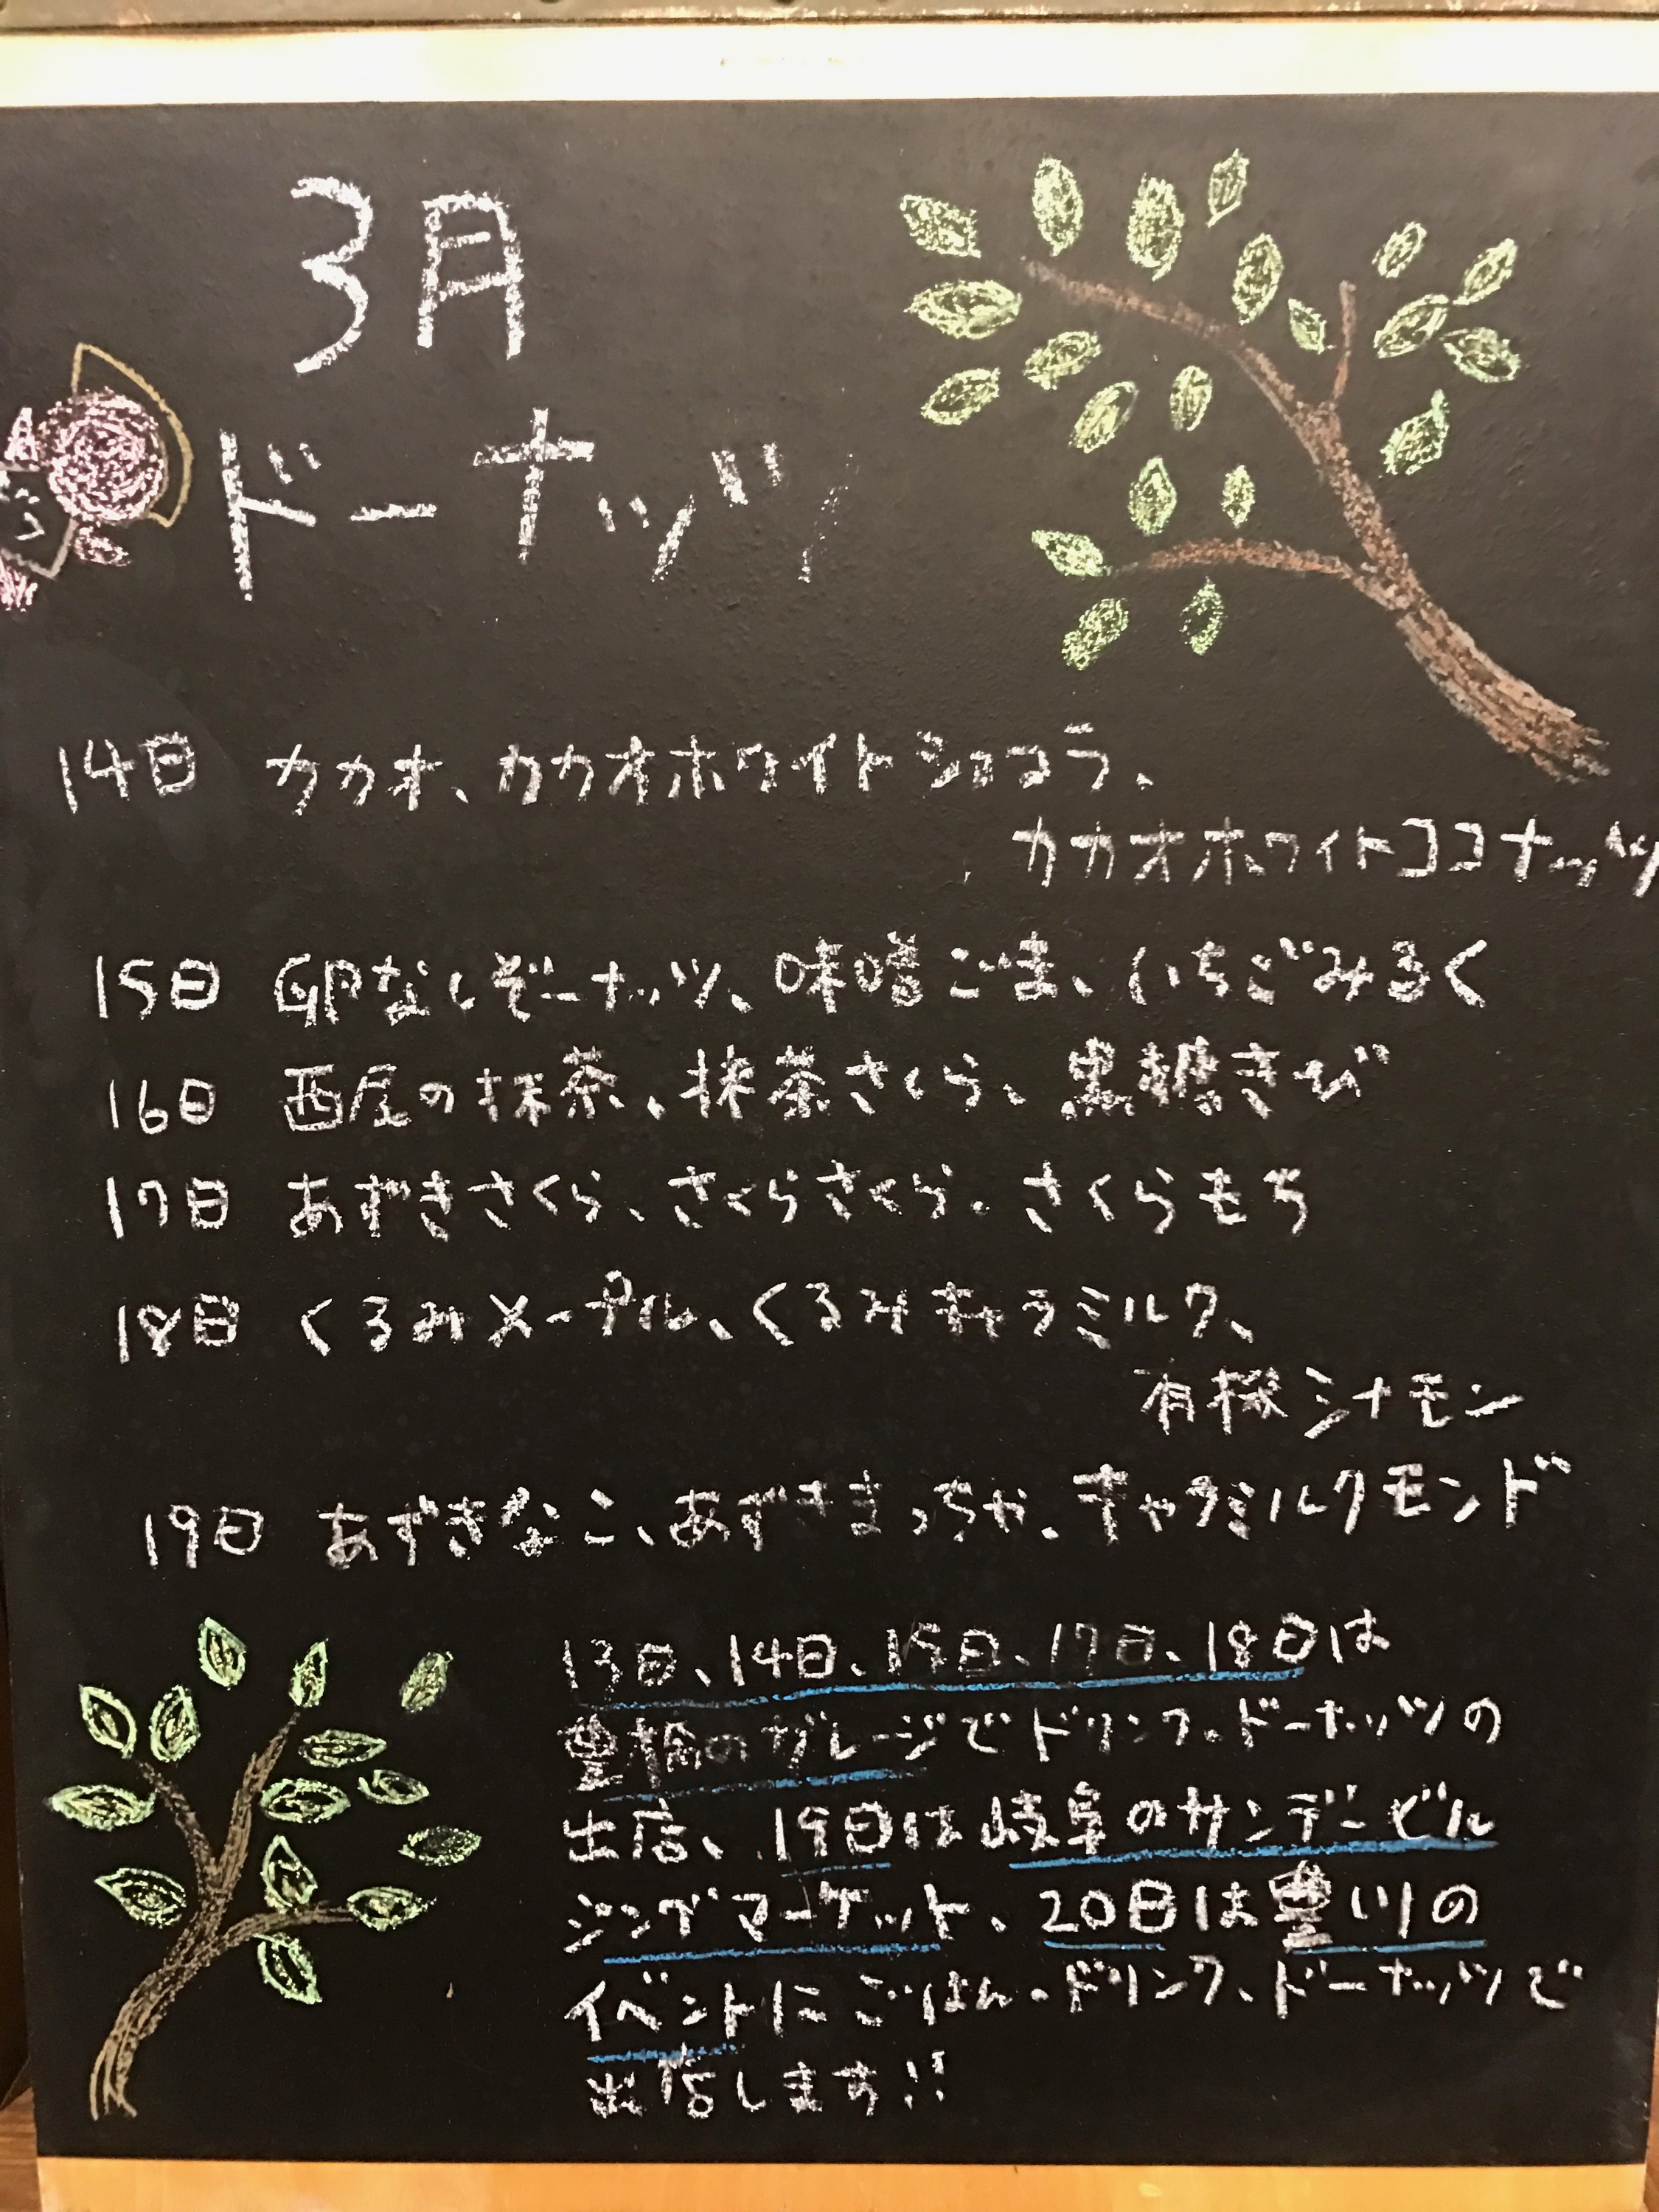 3月
ドーナッツ
14日 カカオ、カカオホワイトショコラ、
カカオホワイトココナッツ
15日 GPなしぞーナッツ、味噌ごま、いちごみるく
16日 西尾の抹茶、抹茶さくら、黒糖きび
17日 あずきさくら、さくらさくら、さくらもち
18日 くるみメープル、くるみキャラミルク、
有機シナモン
19日 あずきなこ、あずきまっちゃ、キャラミルクモンド
13日、14日、15日、17日、18日は
豊橋のガレージでドリンク、ドーナッツの
出店、19日は岐阜のサンデービル
ジングマーケット、20日は豊川の
イベントにごはん、ドリンク、ドーナッツで
出店します!!